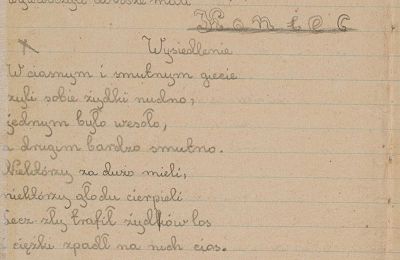 Koniec
Wysiedlenie
W ciasnym i smutnym giecie
żyli sobie żydki nudno,
jednym było wesoło,
a drugim bardzo smutno.
Niektórzy za dużo mieli,
niektórzy głodu cierpieli
Lecz zły trafił żydków los
ciężki spadł na nich cios.